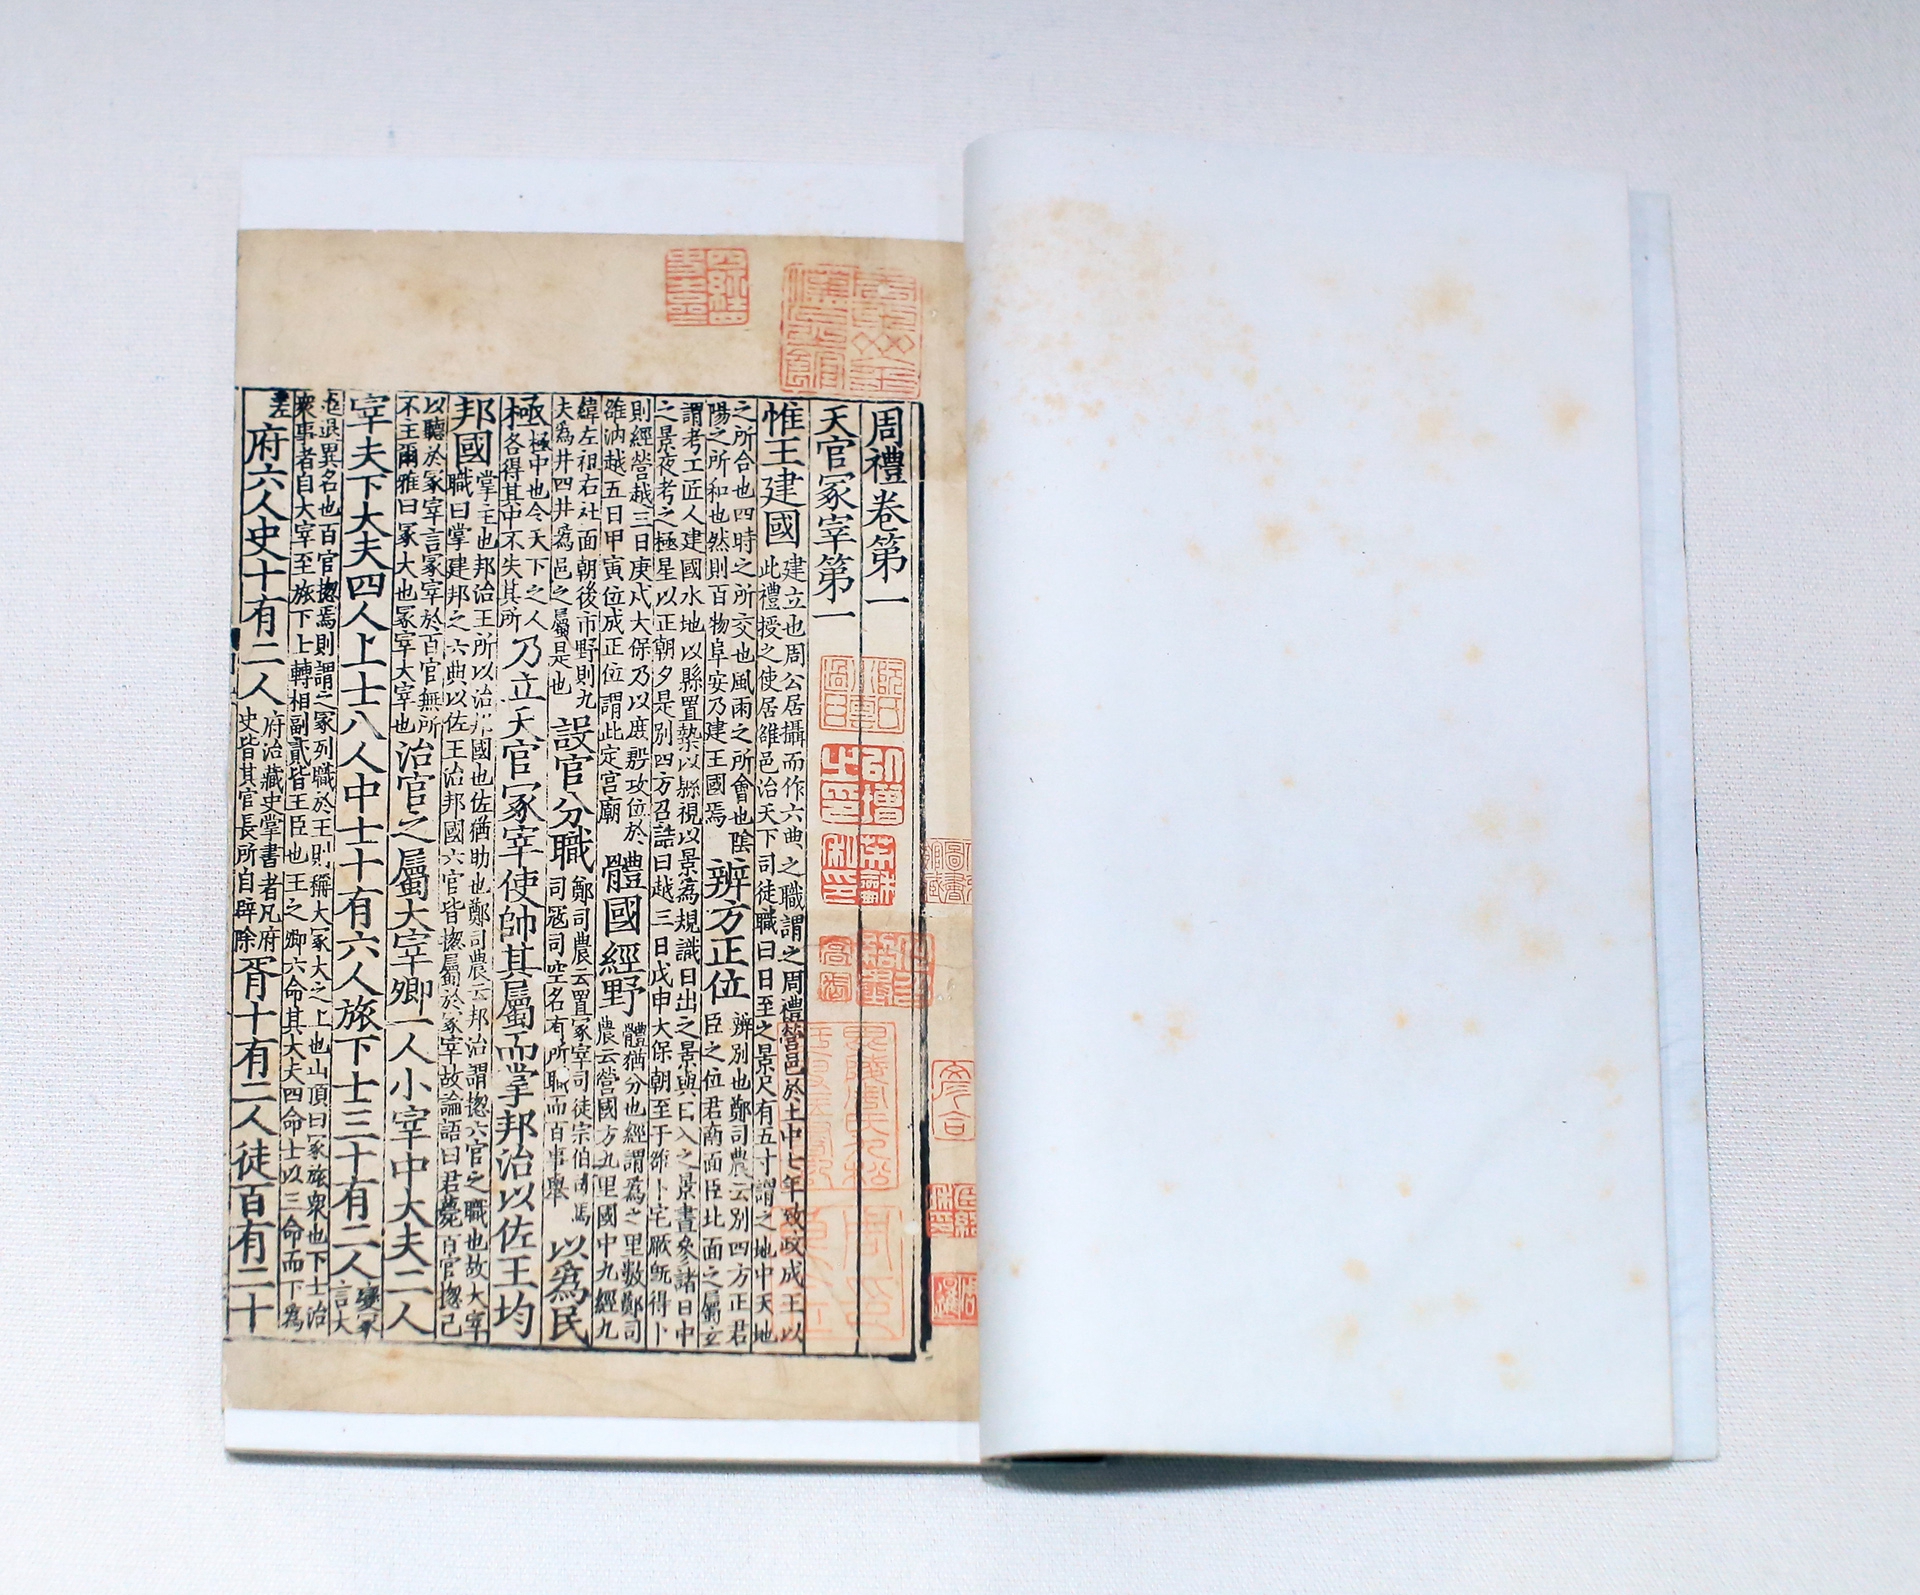 周禮卷第一
天官冢宰第一
惟王建國
建立也周公居攝而作六典之職謂之周禮營邑於土中七年致政成王以
此禮授之使居雒邑治天下司徒職曰日至之景尺有五寸謂之地中天地
之所合也四時之所交也風雨之所會也陰
陽之所和也然則百物阜安乃建王國焉
辨方正位
辨別也鄭司農云別四方正君
臣之位君南面臣北面之屬玄
謂考工匠人建國水地以縣置槷以縣視以景為規識日出之景與日入之景晝參諸日中
之景夜考之極星以正朝夕是別四方召誥曰越三日戊申大保朝至于雒卜宅厥旣得卜
則經營越三日庚戌大保乃以庶殷攻位於
雒汭越五日甲寅位成正位謂此定宮廟
體國經野
體猶分也經謂為之里數鄭司
農云營國方九里國中九經九
緯左祖右社面朝後市野則九
夫為井四井為邑之屬是也
設官分職
鄭司農云置冢宰司徒宗伯司馬
司寇司空各有所職而百事舉
以爲民
極
極中也令天下之人
各得其中不失其所
乃立天官冢宰使帥其屬而掌邦治以佐王均
邦國
掌主也邦治王所以治邦國也佐猶助也鄭司農云邦治謂揔六官之職也故大宰
職曰掌建邦之六典以佐王治邦國六官皆揔屬於冢宰故論語曰君薨百官揔己
以聽於冢宰言冢宰於百官無所
不主爾雅曰冢大也冢宰大宰也
治官之屬大宰卿一人小宰中大夫二人
宰夫下大夫四人上士八人中士十有六人旅下士三十有二人
變冢
言大
進退異名也百官揔焉則謂之冢列職於王則稱大冢大之上也山頂曰冢旅衆也下士治
衆事者自大宰至旅下士轉相副貳皆王臣也王之卿六命其大夫四命士以三命而下為
差
府六人史十有二人
府治藏史掌書者凡府
史皆其官長所自辟除
胥十有二人徒百有二十